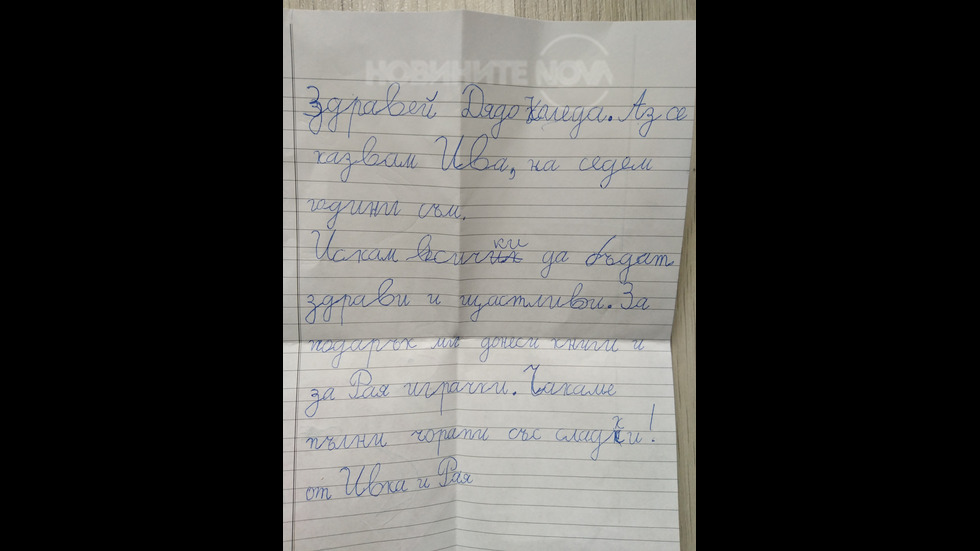 НОВИНИТЕ NOVA
Здравей Дядо Коледа. Аз се
казвам Ива, на седем
години съм.
Искам всички да бъдат
здрави и щастливи. За
подарък ми донеси книги и
за Рая играчки. Чакаме
пълни чорапи със сладки!
от Ивка и Рая